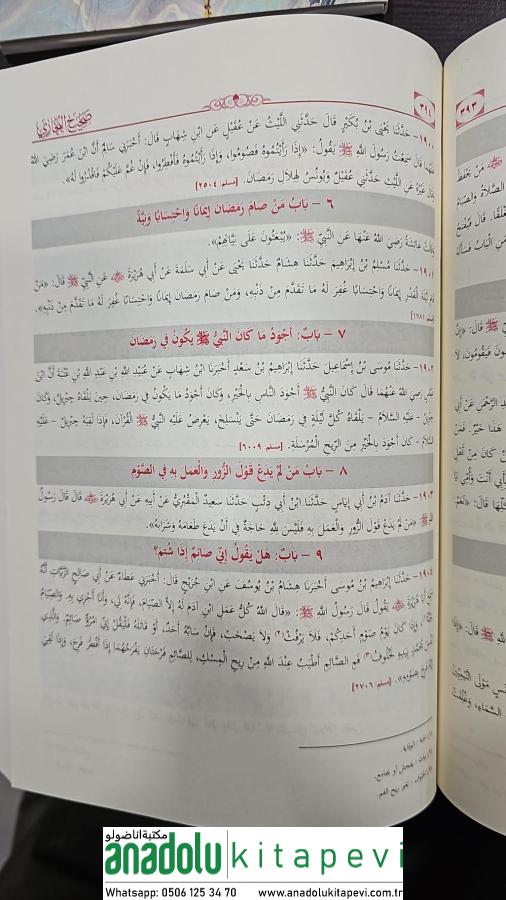 صحيح البخاري
٣٩٤
١٩٠٠ – حَدَّثَنَا يَحْيَى بْنُ بُكَيْرٍ قَالَ حَدَّثَنِي اللَّيْثُ عَنْ عُقَيْلٍ عَنِ ابْنِ شِهَابٍ قَالَ: أَخْبَرَنِي سَالِمٌ أَنَّ ابْنَ عُمَرَ رَضِيَ اللَّهُ
عَنْهُمَا قَالَ سَمِعْتُ رَسُولَ اللَّهِ ﷺ يَقُولُ: «إِذَا رَأَيْتُمُوهُ فَصُومُوا، وَإِذَا رَأَيْتُمُوهُ فَأَفْطِرُوا، فَإِنْ غُمَّ عَلَيْكُمْ فَاقْدُرُوا لَهُ».
وَقَالَ غَيْرُهُ عَنِ اللَّيْثِ حَدَّثَنِي عُقَيْلٌ وَيُونُسُ لِهِلَالِ رَمَضَانَ. [مسلم: ٢٥٠٤]
٦ – بَابُ مَنْ صَامَ رَمَضَانَ إِيمَانًا وَاحْتِسَابًا وَنِيَّةً
وَقَالَتْ عَائِشَةُ رَضِيَ اللَّهُ عَنْهَا عَنِ النَّبِيِّ ﷺ: «يُبْعَثُونَ عَلَى نِيَّاتِهِمْ».
١٩٠١ – حَدَّثَنَا مُسْلِمُ بْنُ إِبْرَاهِيمَ حَدَّثَنَا هِشَامٌ حَدَّثَنَا يَحْيَى عَنْ أَبِي سَلَمَةَ عَنْ أَبِي هُرَيْرَةَ ﵁ عَنِ النَّبِيِّ ﷺ قَالَ: «مَنْ
قَامَ لَيْلَةَ الْقَدْرِ إِيمَانًا وَاحْتِسَابًا غُفِرَ لَهُ مَا تَقَدَّمَ مِنْ ذَنْبِهِ، وَمَنْ صَامَ رَمَضَانَ إِيمَانًا وَاحْتِسَابًا غُفِرَ لَهُ مَا تَقَدَّمَ مِنْ ذَنْبِهِ».
[مسلم: ١٧٨١]
٧ – بَابٌ: أَجْوَدُ مَا كَانَ النَّبِيُّ ﷺ يَكُونُ فِي رَمَضَانَ
١٩٠٢ – حَدَّثَنَا مُوسَى بْنُ إِسْمَاعِيلَ حَدَّثَنَا إِبْرَاهِيمُ بْنُ سَعْدٍ أَخْبَرَنَا ابْنُ شِهَابٍ عَنْ عُبَيْدِ اللَّهِ بْنِ عَبْدِ اللَّهِ بْنِ عُتْبَةَ أَنَّ ابْنَ
عَبَّاسٍ رَضِيَ اللَّهُ عَنْهُمَا قَالَ كَانَ النَّبِيُّ ﷺ أَجْوَدَ النَّاسِ بِالْخَيْرِ، وَكَانَ أَجْوَدُ مَا يَكُونُ فِي رَمَضَانَ، حِينَ يَلْقَاهُ جِبْرِيلُ، وَكَانَ
جِبْرِيلُ – عَلَيْهِ السَّلَامُ – يَلْقَاهُ كُلَّ لَيْلَةٍ فِي رَمَضَانَ حَتَّى يَنْسَلِخَ، يَعْرِضُ عَلَيْهِ النَّبِيُّ ﷺ الْقُرْآنَ، فَإِذَا لَقِيَهُ جِبْرِيلُ – عَلَيْهِ
السَّلَامُ – كَانَ أَجْوَدَ بِالْخَيْرِ مِنَ الرِّيحِ الْمُرْسَلَةِ. [مسلم: ٦٠٠٩]
٨ – بَابُ مَنْ لَمْ يَدَعْ قَوْلَ الزُّورِ وَالْعَمَلَ بِهِ فِي الصَّوْمِ
١٩٠٣ – حَدَّثَنَا آدَمُ بْنُ أَبِي إِيَاسٍ حَدَّثَنَا ابْنُ أَبِي ذِئْبٍ حَدَّثَنَا سَعِيدٌ الْمَقْبُرِيُّ عَنْ أَبِيهِ عَنْ أَبِي هُرَيْرَةَ ﵁ قَالَ قَالَ رَسُولُ
اللَّهِ ﷺ: «مَنْ لَمْ يَدَعْ قَوْلَ الزُّورِ وَالْعَمَلَ بِهِ فَلَيْسَ لِلَّهِ حَاجَةٌ فِي أَنْ يَدَعَ طَعَامَهُ وَشَرَابَهُ».
٩ – بَابٌ: هَلْ يَقُولُ إِنِّي صَائِمٌ إِذَا شُتِمَ؟
١٩٠٤ – حَدَّثَنَا إِبْرَاهِيمُ بْنُ مُوسَى أَخْبَرَنَا هِشَامُ بْنُ يُوسُفَ عَنِ ابْنِ جُرَيْجٍ قَالَ: أَخْبَرَنِي عَطَاءٌ عَنْ أَبِي صَالِحٍ الزَّيَّاتِ أَنَّهُ
سَمِعَ أَبَا هُرَيْرَةَ ﵁ يَقُولُ قَالَ رَسُولُ اللَّهِ ﷺ: «قَالَ اللَّهُ كُلُّ عَمَلِ ابْنِ آدَمَ لَهُ إِلَّا الصِّيَامَ، فَإِنَّهُ لِي، وَأَنَا أَجْزِي بِهِ. وَالصِّيَامُ
جُنَّةٌ، وَإِذَا كَانَ يَوْمُ صَوْمِ أَحَدِكُمْ، فَلَا يَرْفُثْ(٢) وَلَا يَصْخَبْ، فَإِنْ سَابَّهُ أَحَدٌ، أَوْ قَاتَلَهُ فَلْيَقُلْ إِنِّي امْرُؤٌ صَائِمٌ. وَالَّذِي
نَفْسُ مُحَمَّدٍ بِيَدِهِ لَخُلُوفُ(٣) فَمِ الصَّائِمِ أَطْيَبُ عِنْدَ اللَّهِ مِنْ رِيحِ الْمِسْكِ، لِلصَّائِمِ فَرْحَتَانِ يَفْرَحُهُمَا إِذَا أَفْطَرَ فَرِحَ، وَإِذَا لَقِيَ
رَبَّهُ فَرِحَ بِصَوْمِهِ». [مسلم: ٢٧٠٦]
(١) جنة: الوقاية.
(٢) يرفث: يفحش أو يجامع.
(٣) الخلوف: تغير ريح الفم.
٣٩٣
مكتبة اناضولو
anadolu kitapevi
Whatsapp: 0506 125 34 70 www.anadolukitapevi.com.tr